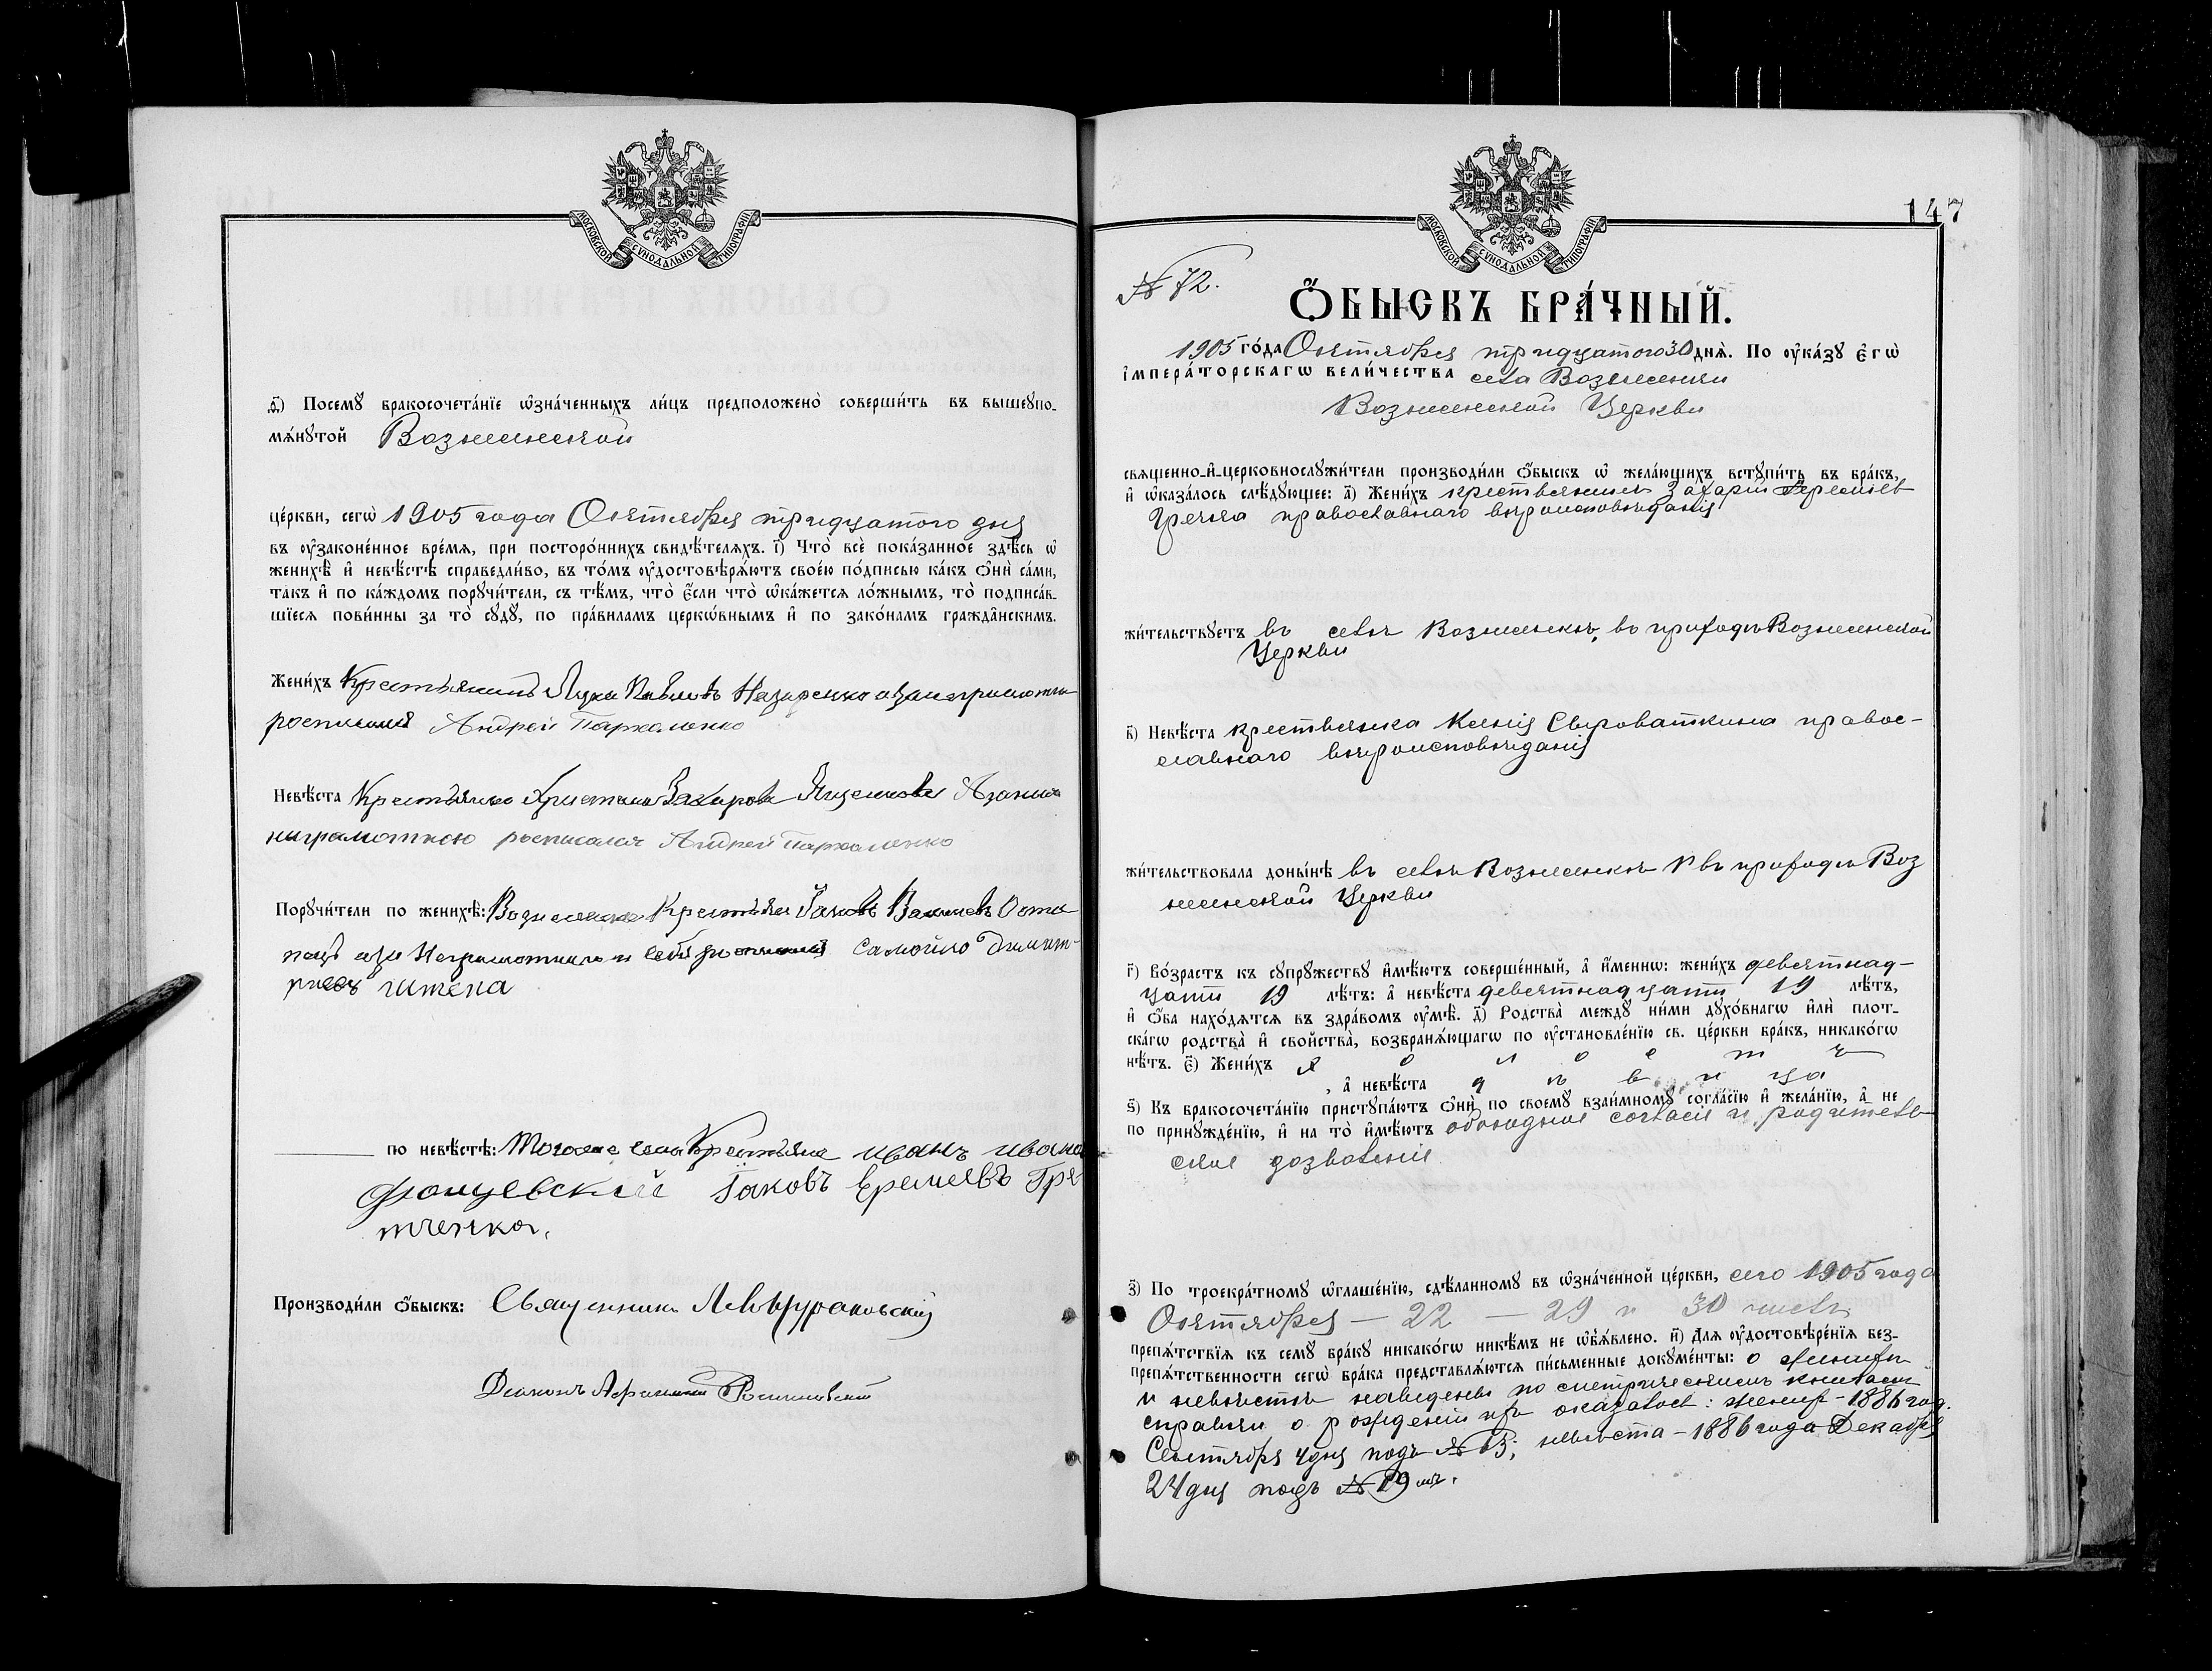 МОСКОВСКОЙ СѴНОДАЛЬНОЙ ТИПОГРАФІИ
д҃) Посемꙋ бракосочета́нїе ѡ҆зна́ченныхъ ли́цъ предположено̀ соверши́ть въ вышеꙋпо-
мѧ́нꙋтой Вознесенской
це́ркви, сегѡ̀ 1905 года Октября тридцатого дня
въ ᲂу҆законе́нное вре́мѧ, при посторо́ннихъ свидѣ́телѧхъ. і҃) Что̀ всѐ пока́занное здѣ́сь ѡ҆
женихѣ̀ и҆ невѣ́стѣ справедли́во, въ то́мъ ᲂу҆достовѣрѧ́ютъ свое́ю по́дписью ка́къ ѻ҆нѝ са́ми,
та́къ и҆ по ка́ждомъ порꙋчи́тели, съ тѣ́мъ, что̀ є҆́сли что̀ ѡ҆ка́жетсѧ ло́жнымъ, то̀ подписа́в-
шїесѧ пови́нны за то̀ сꙋдꙋ̀, по пра́виламъ церкѡ́внымъ и҆ по зако́намъ гражда̂нскимъ.
Жени́хъ Крестьянинъ Лука Павловъ Назаренко а за неграмотн
росписался Андрей Пархоменко
Невѣ́ста Крестьянка Христина Захарова Яценкова А за нея
неграмотною росписался Андрей Пархоменко
Порꙋчи́тели по женихѣ̀: Вознесенки Крестьяне Іаковъ Оста
пецъ а за неграмотного и себя росписался Самойло Димит-
риевъ
по невѣ́стѣ: Тогоже села Крестьяне иванъ ивано
Іаковъ Еремѣевъ Гре
тченка.
Производи́ли ѻ҆́быскъ: Священникъ
Діаконъ
МОСКОВСКОЙ СѴНОДАЛЬНОЙ ТИПОГРАФІИ
147
№ 72.
Ѻ҆́БЫСКЪ БРА́ЧНЫЙ.
1905 го́да Октября тридцатого 30 днѧ̀. По ᲂу҆ка́зꙋ є҆гѡ̀
і҆мпера́торскагѡ вели́чества села Вознесенки
Вознесенской Церкви
свѧщенно-и҆-церковнослꙋжи́тели производи́ли ѻ҆́быскъ ѡ҆ жела́ющихъ встꙋпи́ть въ бра́къ,
и҆ ѡ҆каза́лось слѣ́дꙋющее: а҃) Жени́хъ крестьянинъ Захарій Еремѣев
Гречка православнаго вѣроисповѣданія
жи́тельствꙋетъ въ селѣ Вознесенкѣ, въ приходѣ Вознесенской
Церкви
в҃) Невѣ́ста крестьянка Ксенія Сыроваткина правос-
славнаго вѣроисповѣданія
жи́тельствовала доны́нѣ въ селѣ Вознесенкѣ въ приходѣ Воз
несенской Церкви
г҃) Во́зрастъ къ сꙋпрꙋ́жествꙋ и҆мѣ́ютъ соверше́нный, а҆ и҆́менно: жени́хъ девятнад-
цати 19 лѣ́тъ: а҆ невѣ́ста девятнадцати 19 лѣ́тъ,
и҆ ѻ҆́ба нахо́дѧтсѧ въ здра́вомъ ᲂу҆мѣ̀. д҃) Родства̀ междꙋ̀ ни́ми дꙋхо́внагѡ и҆лѝ плот-
ска́гѡ родства̀ и҆ сво́йства, возбранѧ́ющагѡ по ᲂу҆становле́нїю св. це́ркви бра́къ, никако́гѡ
нѣ́тъ. є҃) Жени́хъ х о л о с т ъ
, а҆ невѣ́ста д ѣ в и ца
ѕ҃) Къ бракосочета́нїю пристꙋпа́ютъ ѻ҆нѝ по своемꙋ̀ взаи́мномꙋ согла́сїю и҆ жела́нїю, а҆ не
по принꙋжде́нїю, и҆ на то̀ и҆мѣ́ютъ обоюдное согласіе и родитель
ское дозволеніе
з҃) По троекра́тномꙋ ѡ҆глаше́нїю, сдѣ́ланномꙋ въ ѡ҆зна́ченной це́ркви, сего 1905 года
Октября — 22 — 29 и 30 числъ
препѧ́тствїѧ къ семꙋ̀ бра́кꙋ никако́гѡ никѣ́мъ не ѡ҆б̾ѧ́влено. и҃) Длѧ ᲂу҆достовѣре́нїѧ без-
препѧ́тственности сегѡ̀ бра́ка представлѧ́ютсѧ пи́сьменные докꙋме́нты: о женихѣ
и невѣстѣ наведены по метрическимъ книгамъ
справки о рожденіи ихъ оказалось: жених – 1886 год.
Сентября 4 дня подъ № 63; невѣста – 1886 года Декабря
24 дня подъ № 79 мъ.